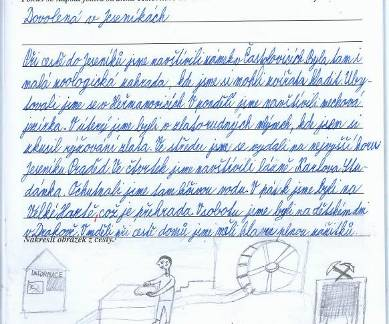 Dovolená v Jeseníkách
Při cestě do Jeseníků jsme navštívili zámek Častolovice. Byla tam i
malá zoologická zahrada kde jsme si mohli zvířata hladit. Uby-
tovali jsme se v Heřmanovicích. V pondělí jsme navštívili
V úterý jsme byli v zlatorudných mlýnech, kde jsem si
zkusil rýžování zlata. Ve středu jsme se vydali na nejvyšší horu
Jeseníku Praděd. Ve čtvrtek jsme navštívili lázně Karlova Stu-
dánka. Ochutnali jsme tamější vodu. V pátek jsme byli na
což je přehrada. V sobotu jsme byli na dětském dni
V neděli při cestě domů jsme měli hlavu plnou zážitků.
Nakresli obrázek z cesty.
INFORMACE